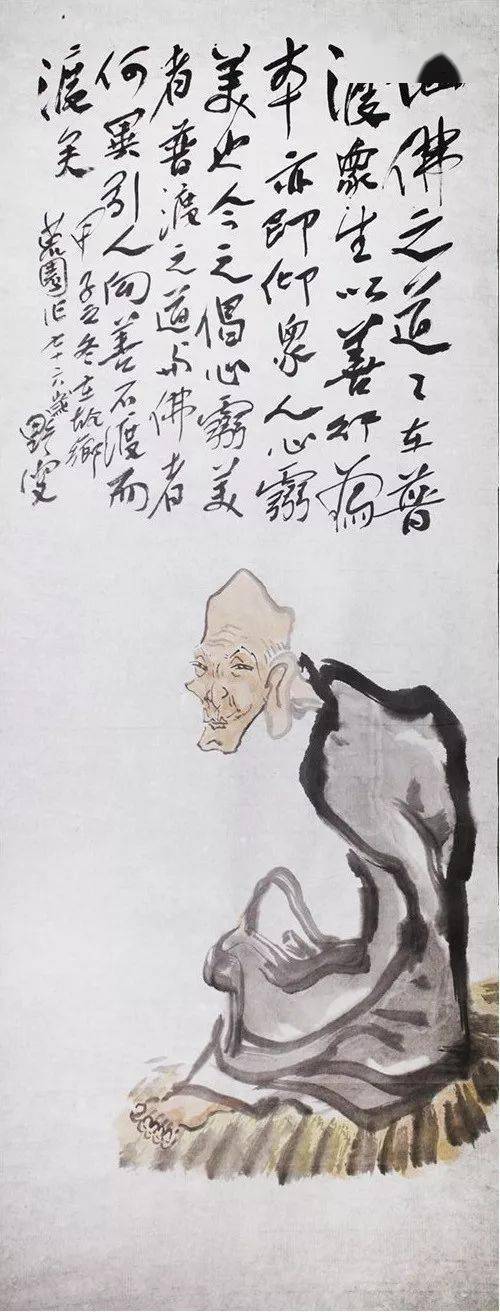 佛之道々在普
渡衆生以善行為
本亦即仰衆人心靈
美也今之倡心靈美
者普渡之道与佛者
何異引人向善不渡而
渡矣
甲子冬在故鄉
園作七十六歲野叟